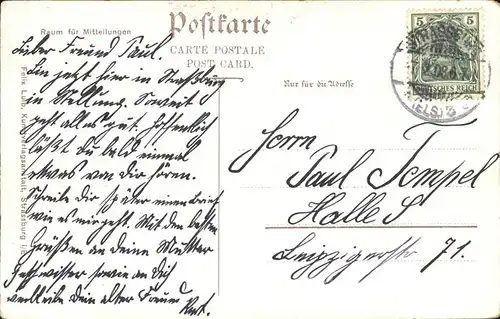 Raum für Mitteilungen
Postkarte
CARTE POSTALE
POST CARD.
Nur für die Adresse
Lieber Freund Paul.
Bin jetzt hier in Straßburg
in Stellung. Soweit
geht alles gut. Hoffentlich
läßt Du bald einmal
etwas von dir hören.
Schreibe dir später einen Brief
wie es mir geht. Mit den besten
Grüßen an deine Mutter
Geschwister sowie an dich
verbleibe dein alter Freund
Herrn
Paul Tempel
Halle S
Leipzigerstr 71.
5 5
DEUTSCHES REICH
STRASSBURG
(ELS.) 3
Felix Luib, Kunstverlagsanstalt, Strassburg i. E.